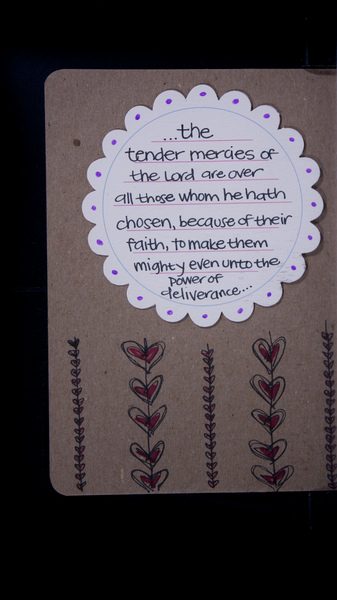 ...the
tender mercies of
the Lord are over
all those whom he hath
chosen, because of their
faith, to make them
mighty even unto the
power of
deliverance...